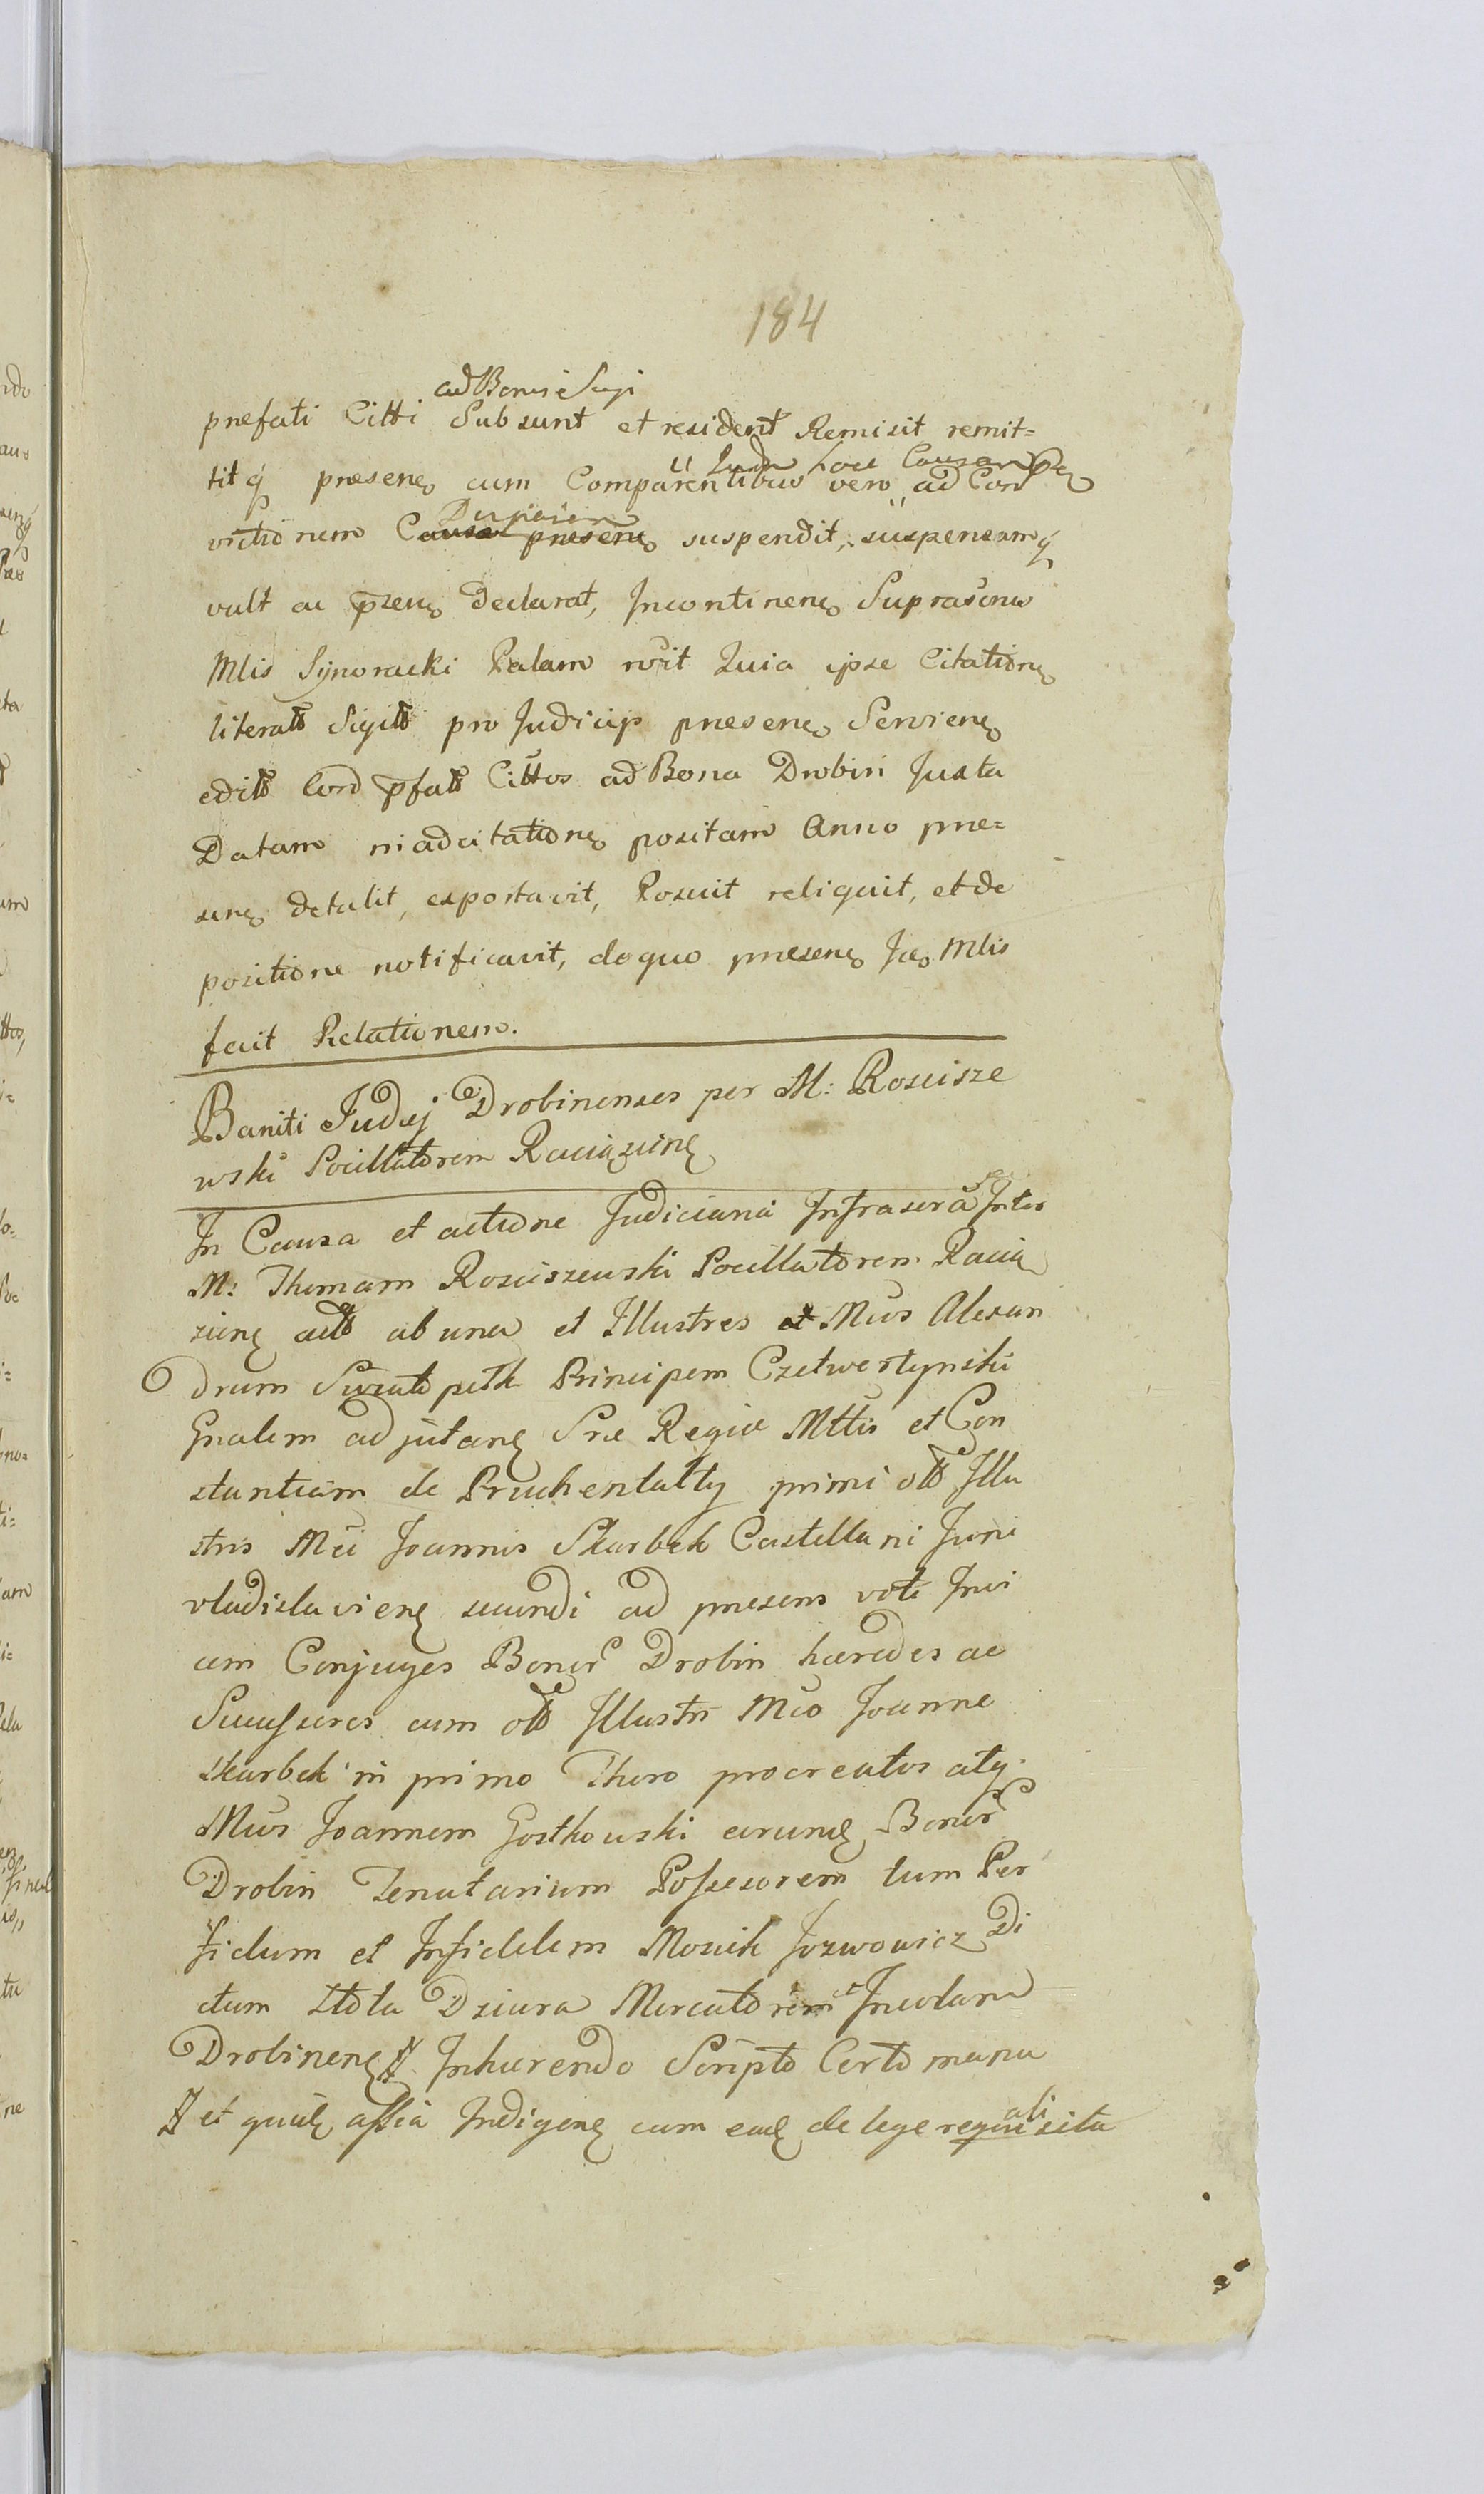 184
ad Bona Suji
prefati Citti Subsunt et resident Remisit remit=
tit q́ presenę cum Comparentibus vero ad Con
victionem Causae presenę suspendit, suspensamq́
vult ac przenę declarat, Incontinenę Suprascrius
Mlis Synoracki Palam recit Quia ipse Citationę
literatō Sigitō pro Judicijs presenę Servienę
editō Cord pfatō Cittos ad Bona Drobin Juxta
Datam in adcitationę positam Anno pre=
senę detulit, exportavit, Posuit reliquit, et de
positione notificavit, de quo presenę Jcę Mlis
fecit Relationem.
Baniti Judej Drobinenses per M: Roscisze
wski Pocillatorem Raciązinę
In Causa et actione Judiciaria Infrascra Inter
M: Thomam Rosciszewski Pocillatorem Racią
zinę actō ab una et Illustres et Mcos Alexan
drum Swiatopełk Principem Czetwertynski
Gnalem adjutanę Sre Regiæ Mttis et Con
stantiam de Pruchentalty primi oltō Illu
stris Mci Joannis Skarbek Castellani Juni
vladislavienę secundi ad presens voti Invi
cem Conjuges Bonor Drobin hæredes ac
Sucessores cum oltō Illustri Mco Joanne
Skarbek in primo Thoro procreatos atq
Mcos Joannem Gostkowski earundę Bonor
Drobin Tenutarium Possesorem tum Per
fidum et Infidelem Mosiek Jozwowicz Di
ctum Stola Dziura Mercatorem et Incolam
Drobinenę Inhærendo Scripto Certo manu
et qualę assia Indigenę cum eadę de lege requisita
ali